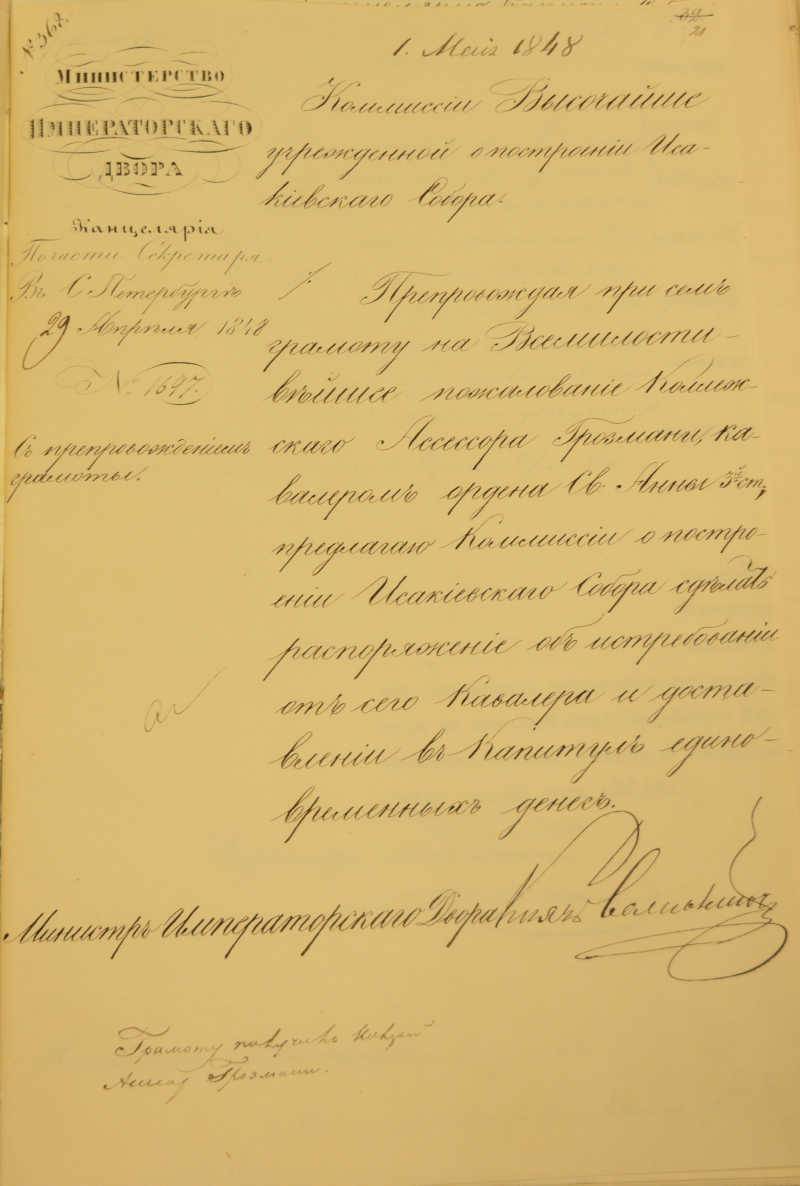 № 367.
32
21
1. Мая 1848
Министерство
Императорскаго
Двора
Канцелярія
По части Секретаря
Въ С Петербургѣ
29 Апрѣля 1848
№ 1697.
Съ препровожденіемъ
грамоты.
Коммиссіи Высочайше
учрежденной о построеніи Иса-
кіевскаго Собора.
Препровождая при семъ
грамоту на Всемилости-
вѣйшее пожалованіе Коллеж-
скаго Ассессора Грозмани, ка-
валеромъ ордена Св. Анны 3й ст.,
предлагаю Коммиссіи о постро-
еніи Исакіевскаго Собора сдѣлать
распоряженіе объ истребованіи
отъ сего Кавалера и доста-
вленіи въ Капитулъ едино-
временныхъ денегъ.
Министръ Императорскаго Двора Князь Волконскій
Грамоту получилъ
Грозмани.